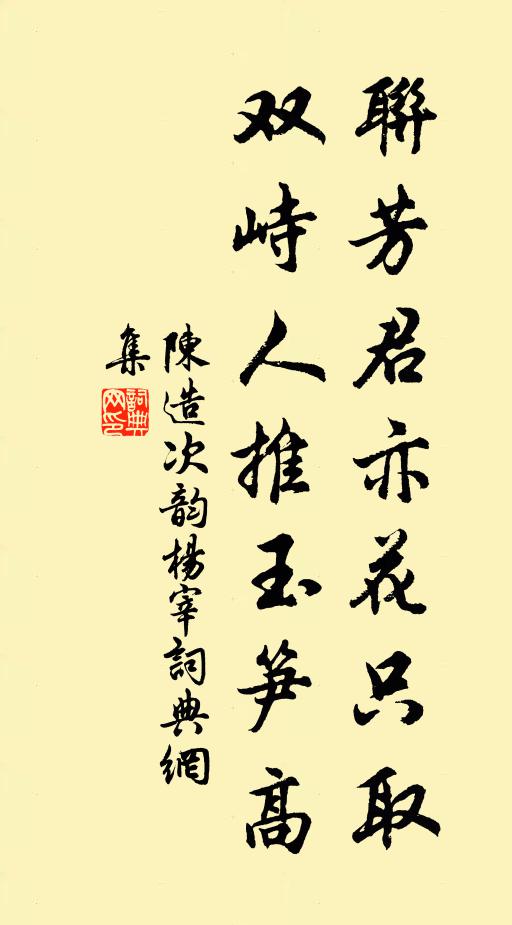 聯芳君亦花只取
双峙人推玉笋高
陳造次韵楊宰詞典網
集
詞典網印